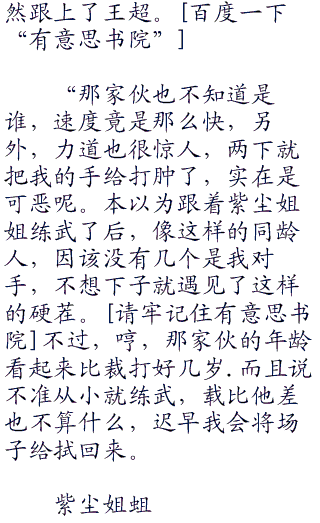 然跟上了王超。[百度一下
“有意思书院”]
“那家伙也不知道是
谁，速度竟是那么快，另
外，力道也很惊人，两下就
把我的手给打肿了，实在是
可恶呢。本以为跟着紫尘姐
姐练武了后，像这样的同龄
人，因该没有几个是我对
手，不想下子就遇见了这样
的硬茬。[请牢记住有意思书
院]不过，哼，那家伙的年龄
看起来比裁打好几岁.而且说
不准从小就练武，载比他差
也不算什么，迟早我会将场
子给拭回来。
紫尘姐蛆